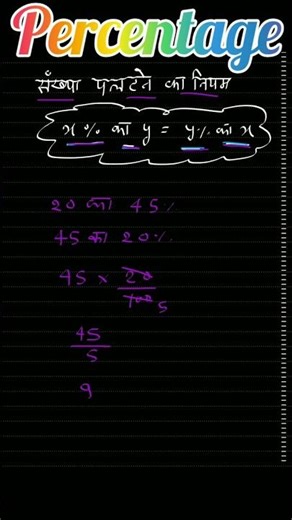 Percentage
संख्या पलटने का नियम
x % का y = y % का x
20 का 45 %
45 का 20 %
45 × 20
100 5
45
5
9